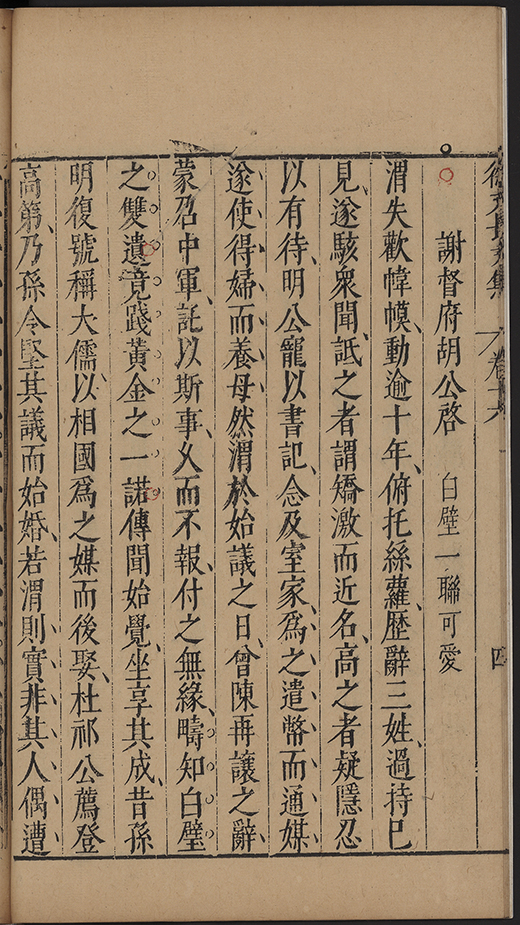 徐文長文集 卷十六 四
謝督府胡公啓 白璧一聯可愛
渭失歡幃幙、動逾十年、俯托絲蘿、歷辭三姓、過持已
見、遂駭衆聞、詆之者謂矯激而近名、高之者疑隱忍
以有待、明公寵以書記、念及室家、爲之遣幣而通媒、
遂使得婦而養母、然渭於始議之日、曾陳再讓之辭、
蒙召中軍、託以斯事、乆而不報、付之無緣、疇知白璧
之雙遺、竟踐黃金之一諾、傳聞始覺、坐享其成、昔孫
明復號稱大儒、以相國爲之媒而後娶、杜祁公薦登
高第、乃孫令堅其議而始婚、若渭則實非其人、偶遭